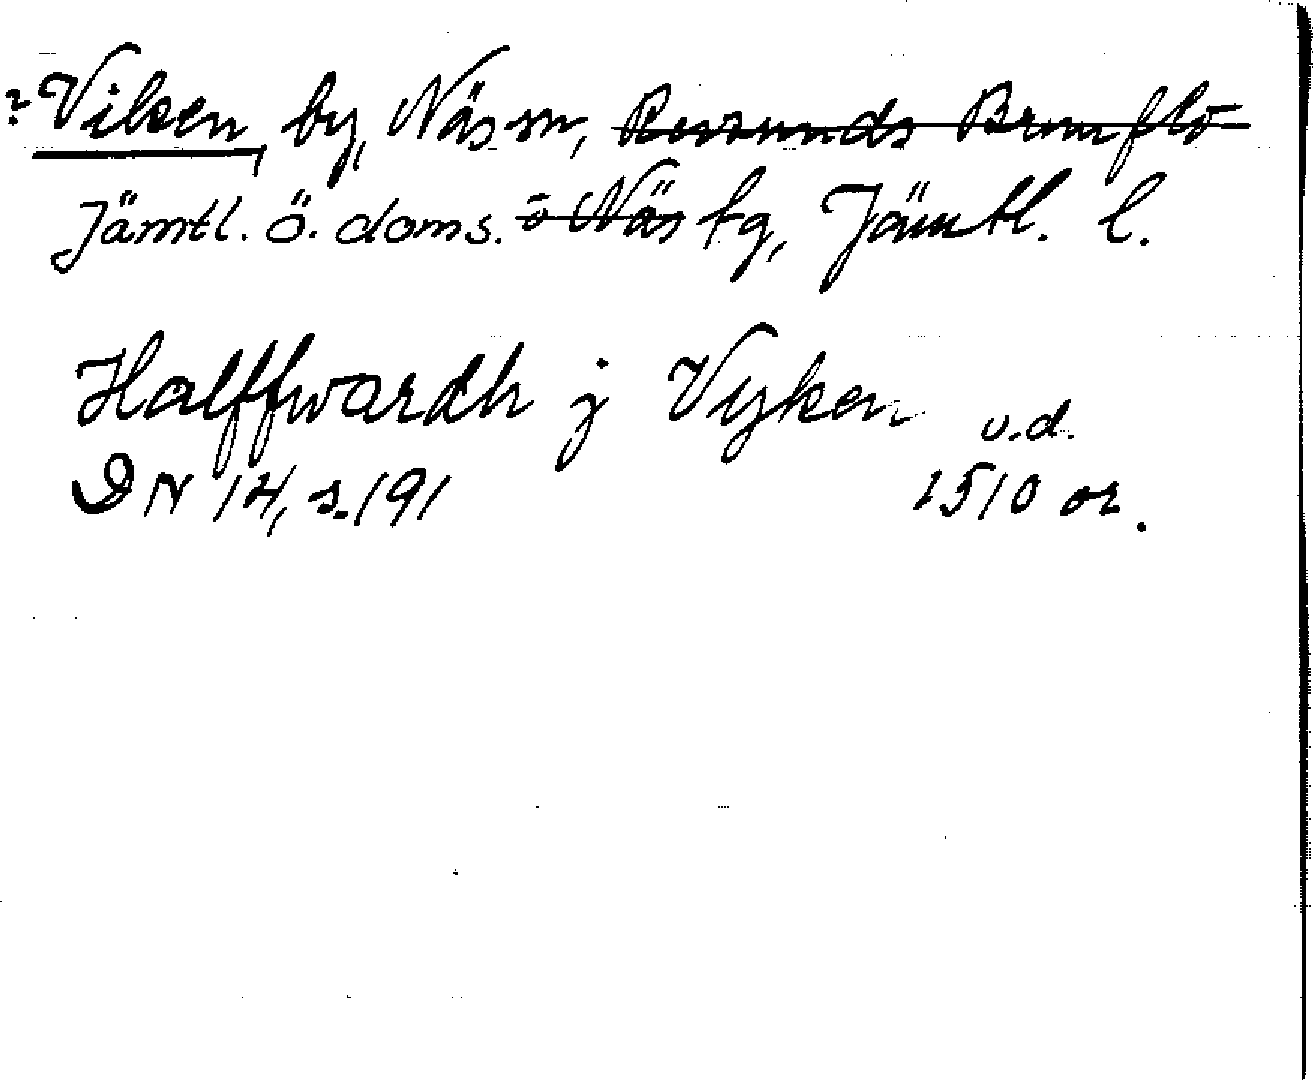 ? Viken, by, Näs sn, Revsunds Brunflo
Jämtl. ö. doms. o Näs tg, Jämtl. l.
Halffwardh j Vyken u.d.
DN 14, s. 191 1510 or.